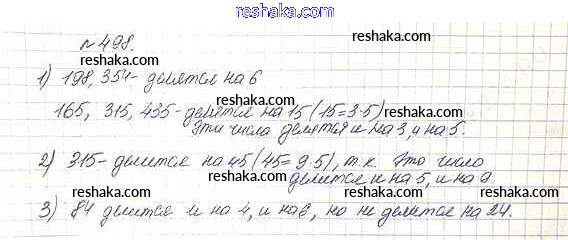 reshaka.ru
№498.
reshaka.ru reshaka.ru
1) 198, 354- делятся на 6
reshaka.ru
165, 315, 435- делятся на 15 (15=3·5)
Эти числа делятся и на 3, и на 5.
reshaka.ru
2) 315- делится на 45 (45=9·5), т.к. это число
делится и на 5, и на 9
reshaka.ru reshaka.ru
3) 84 делится и на 4, и на 6, но не делится на 24.
reshaka.ru reshaka.ru